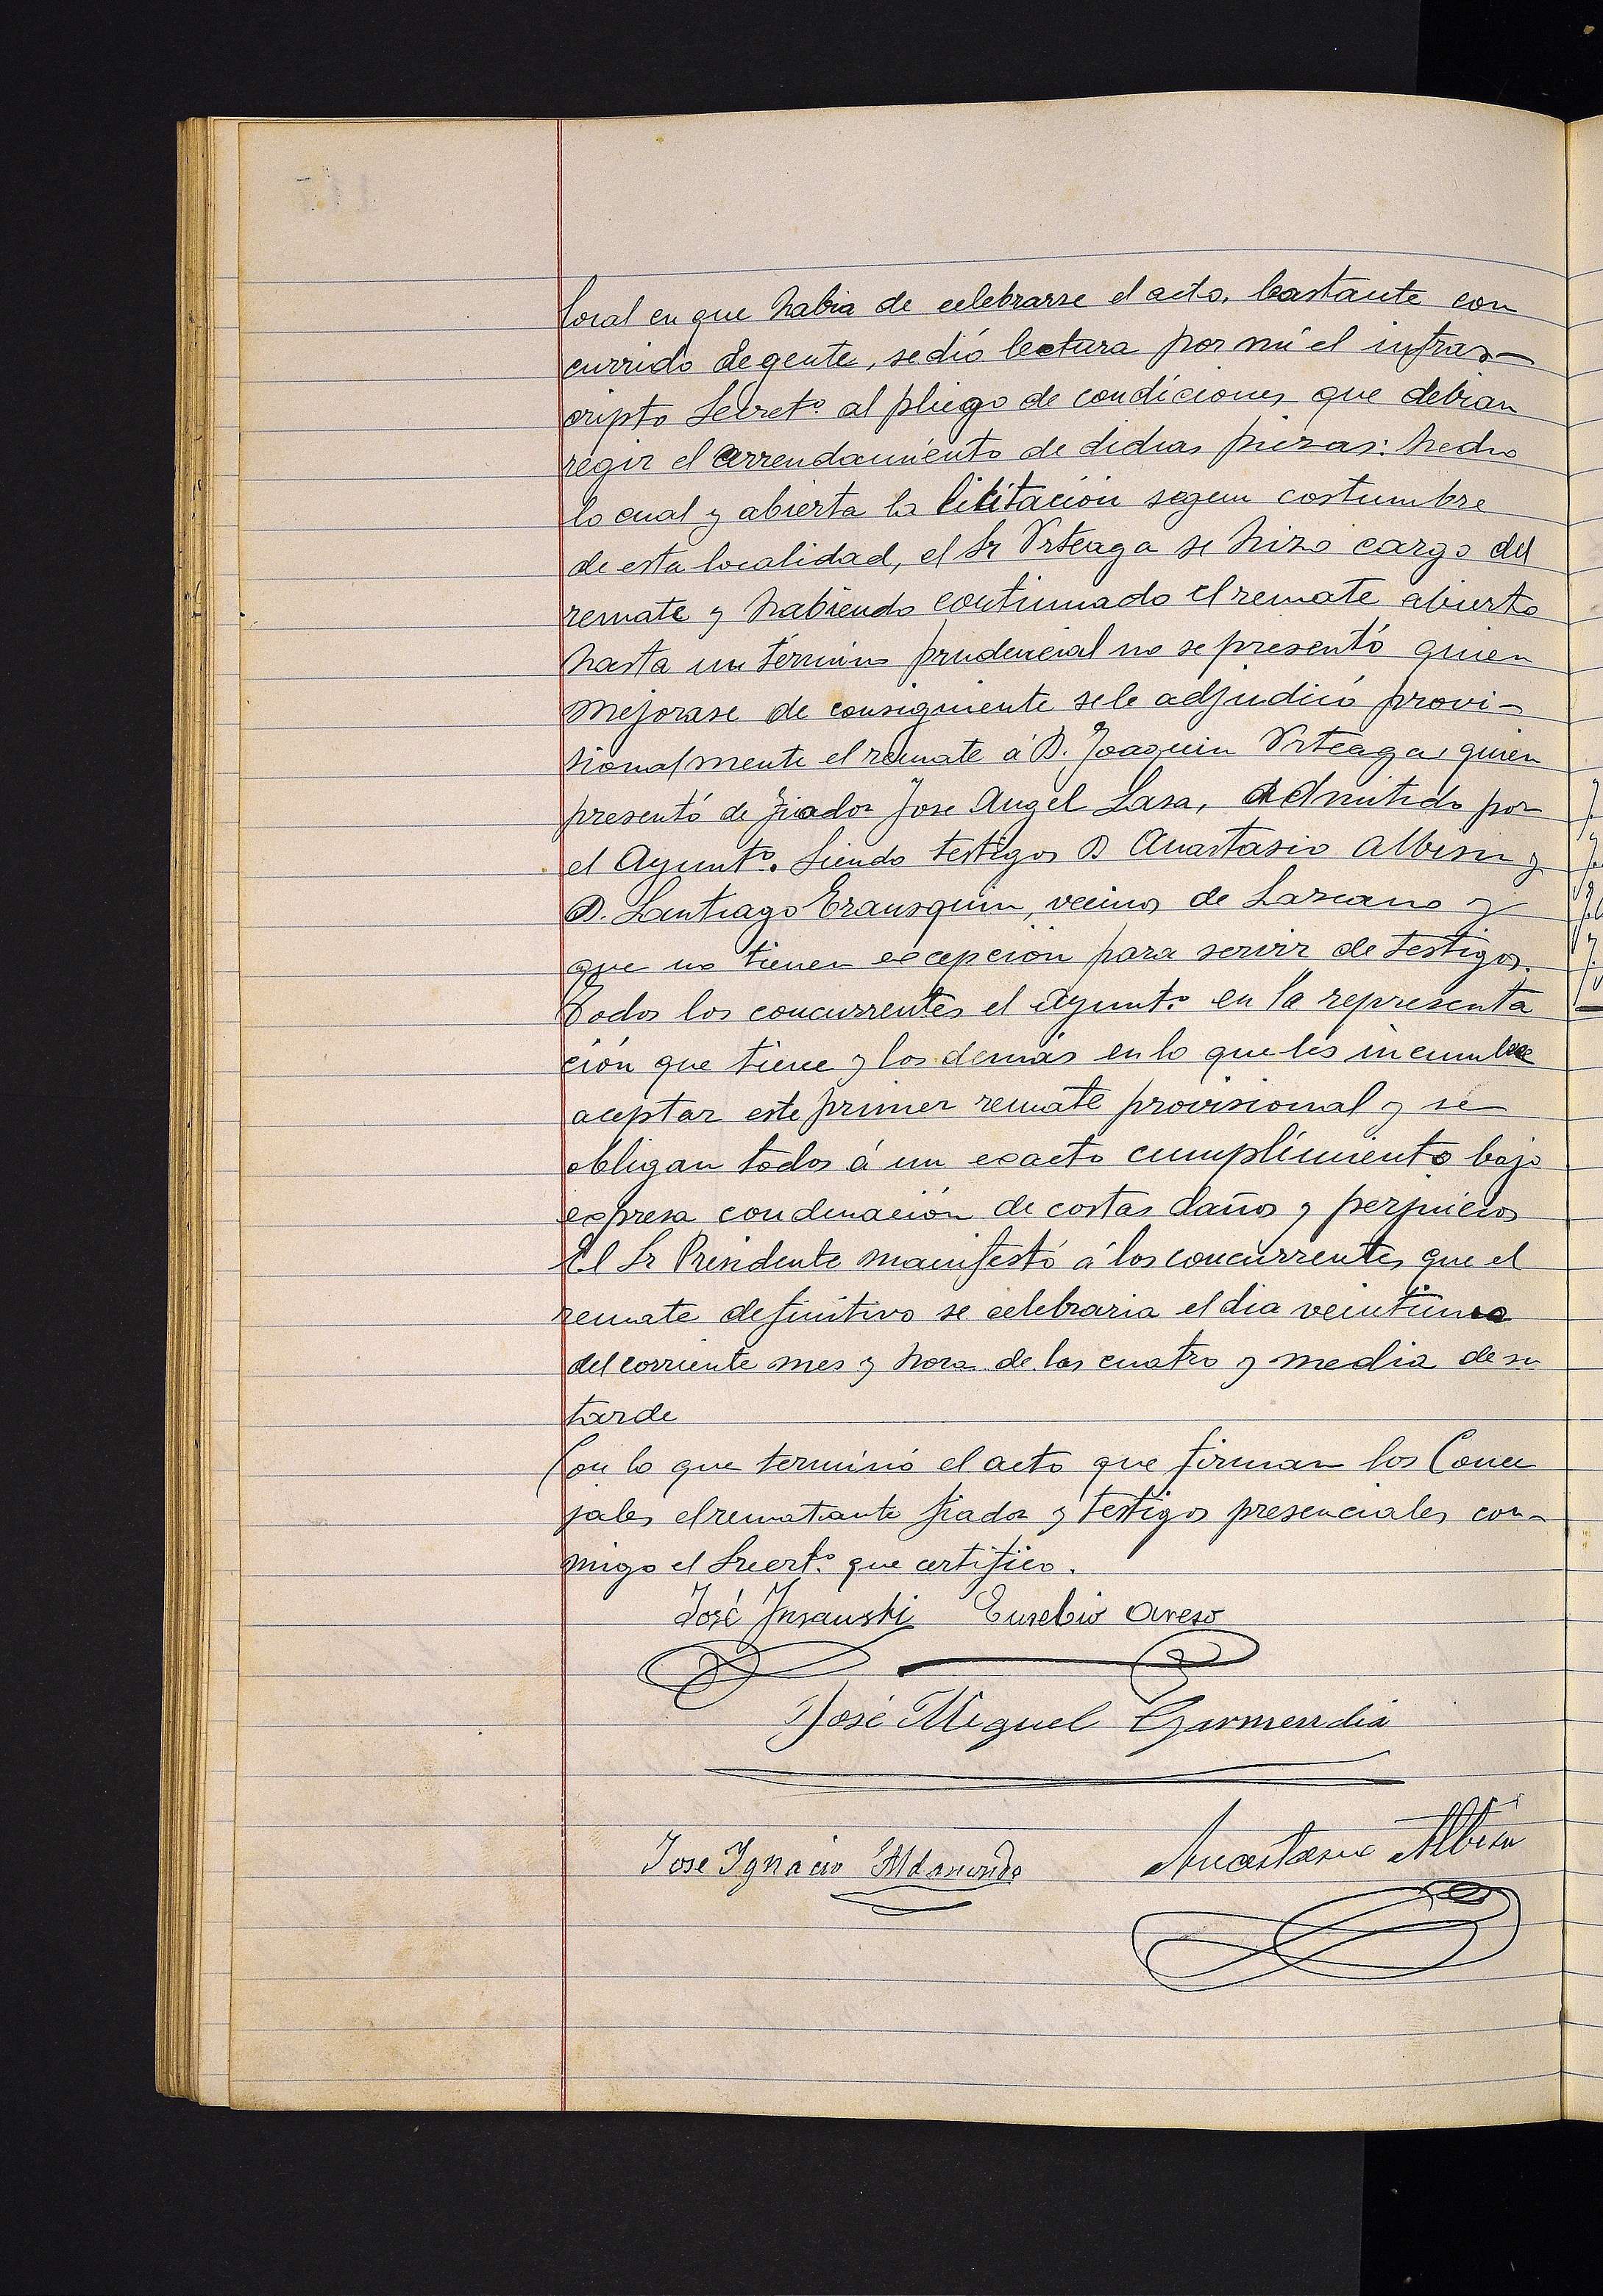 local en que habia de celebrarse el acto, bastante con
currido de gente, se dió lectura por mi el infras-
cripto Secret.º al pliego de condiciones que debian
regir el arrendamiento de dichas piezas: hecho
lo cual y abierta la licitación segun costumbre
de esta localidad, el Sr Urteaga se hizo cargo del
remate y habiendo continuado el remate abierto
hasta un término prudencial no se presentó quien
mejorase de consiguiente se le adjudicó provi-
sionalmente el remate á D. Joaquin Urteaga, quien
presentó de fiador Jose Angel Lasa, admitido por
el Ayunt.º. Siendo testigos D Anastasio Albisu y
D. Santiago Erausquin, vecinos de Lazcano y
que no tienen excepción para servir de testigos.
Todos los concurrentes el Ayunt.º en la representa
ción que tiene y los demás en lo que les incumbe
aceptar este primer remate provisional y se
obligan todos á un exacto cumplimiento bajo
expresa condenación de costas daños y perjuicios
El Sr Presidente manifestó á los concurrentes que el
remate definitivo se celebraria el dia
del corriente mes y hora de las cuatro y media de su
tarde
Con lo que terminó el acto que firman los Conce
jales el rematante fiador y testigos presenciales con-
migo el que certifico.
José Insausti Eusebio Areso
José Miguel Garmendia
Jose Ignacio Anastasio Albisu